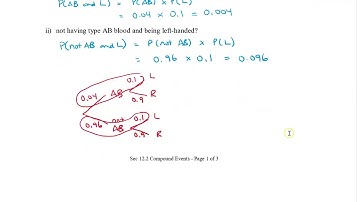 P(AB and L) = P(AB) x P(L)
= 0.04 x 0.1 = 0.004
ii) not having type AB blood and being left-handed?
P(not AB and L) = P(not AB) x P(L)
= 0.96 x 0.1 = 0.096
0.1 L
0.04 AB
0.9 R
0.96 not AB 0.1 L
0.9 R
Sec 12.2 Compound Events - Page 1 of 3